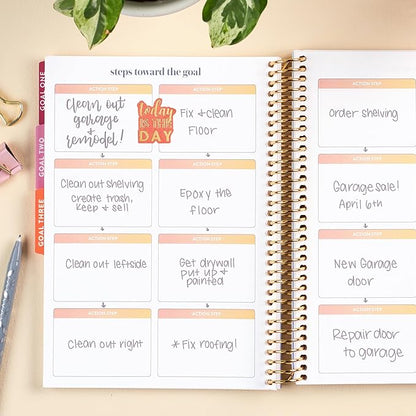 steps toward the goal
GOAL ONE
GOAL TWO
GOAL THREE
ACTION STEP
Clean out
garage
&
remodel!
today
IS THE
DAY
ACTION STEP
Fix & Clean
Floor
ACTION STEP
Order shelving
ACTION STEP
Clean out shelving
create trash,
keep & sell
ACTION STEP
Epoxy the
floor
ACTION STEP
Garage sale!
April 6th
ACTION STEP
Clean out leftside
ACTION STEP
Get drywall
put up &
painted
ACTION STEP
New Garage
door
ACTION STEP
Clean out right
ACTION STEP
* Fix roofing!
ACTION STEP
Repair door
to garage